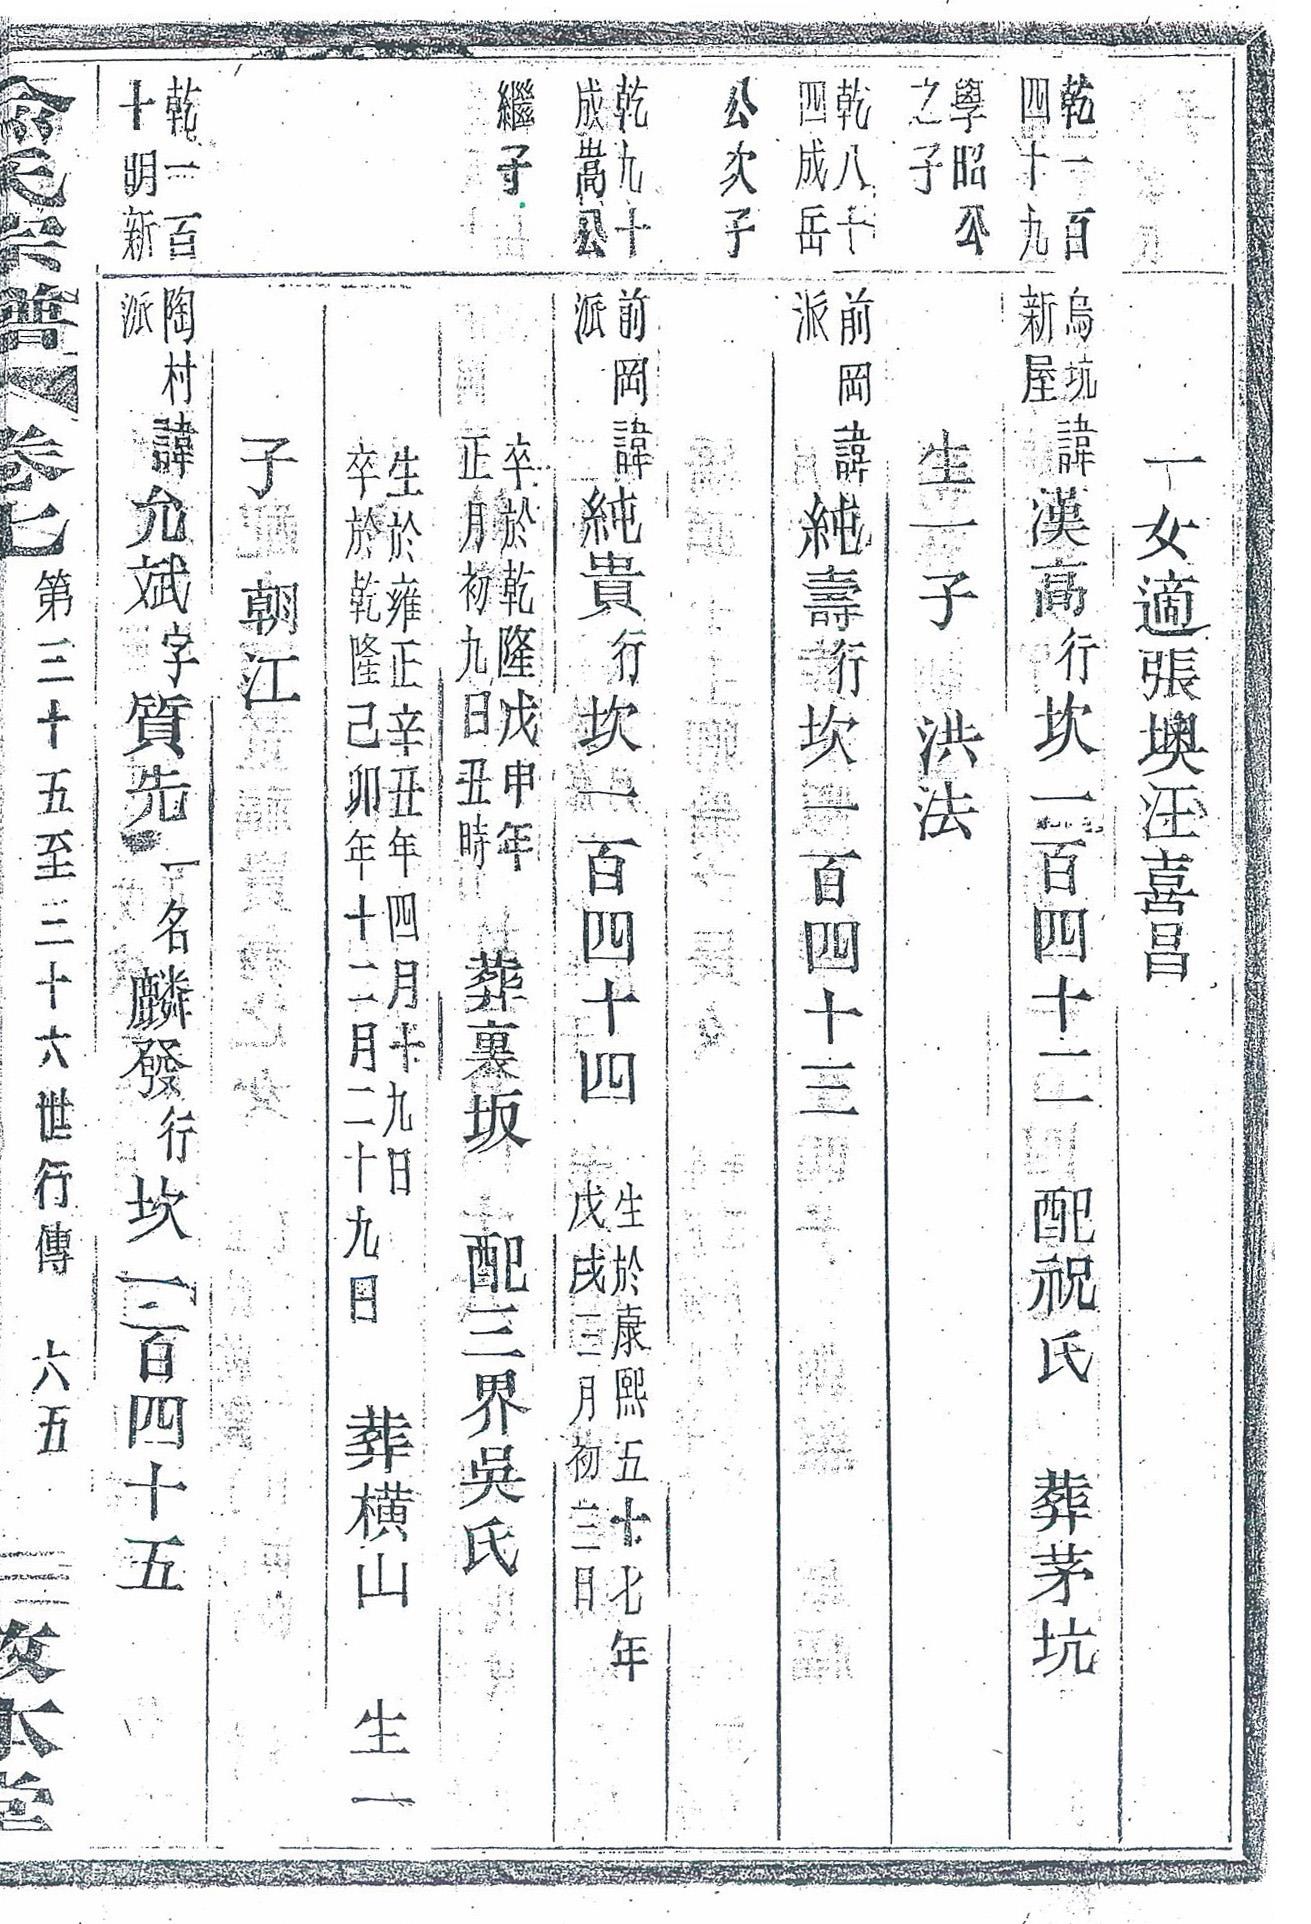 一女適張墺汪喜昌
乾一百四十九
學昭公之子
烏坑新屋諱漢高行坎一百四十二 配祝氏 葬茅坑
生一子 洪法
乾八十四成岳公次子
前岡派諱純壽行坎一百四十三
乾九十成嵩公繼子
前岡派諱純貴行坎一百四十四 生於康熙五十七年戊戌三月初三日
卒於乾隆戊申年正月初九日丑時 葬裏坂 配三界吳氏
生於雍正辛丑年四月十九日卒於乾隆己卯年十二月二十九日 葬橫山 生一
子 朝江
乾一百十明新
陶村派諱允斌字質先 一名麟發行坎一百四十五
宗譜 卷七 第三十五至三十六世行傳 六五 本堂